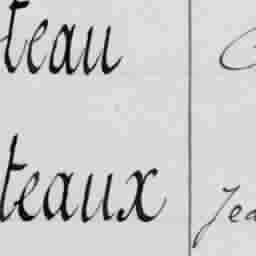 teau
teaux Jea